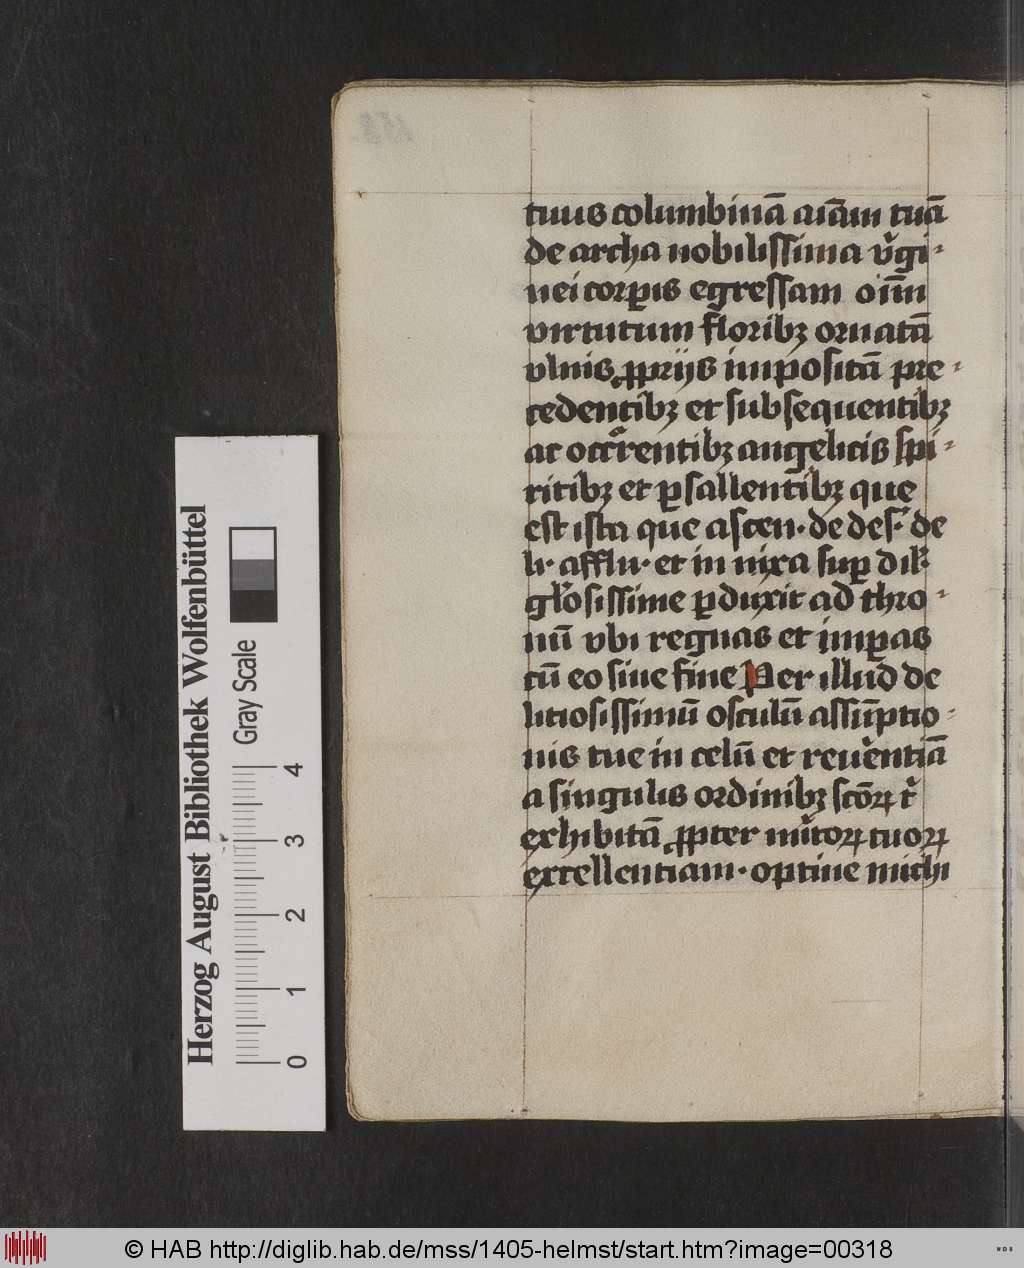 tuus columbinā aīam tuā
de archa nobilissima v̓gi-
nei corꝑis egressam oīm
virtutum floribꝫ ornatā
vlnis ꝓprijs impositā pre-
cedentibꝫ et subsequentibꝫ
ac occ̉rentibꝫ angelicis spi-
ritibꝫ et ꝑsallentibꝫ que
est ista que ascen· de des̓· de
li· afflu· et in nixa suꝑ dil̓·
gl̓osissime ꝑduxit ad thro-
nū vbi regnas et imꝑas
cū eo sine fine Per illud de
litiosissimū osculū assūptio-
nis tue in celū et reuerentiā
a singulis ordinibꝫ scōꝝ t̓
exhibitā ꝓpter mitoꝝ tuoꝝ
excellentiam· optine michi
Herzog August Bibliothek Wolfenbüttel
Gray Scale
0 1 2 3 4
© HAB http://diglib.hab.de/mss/1405-helmst/start.htm?image=00318